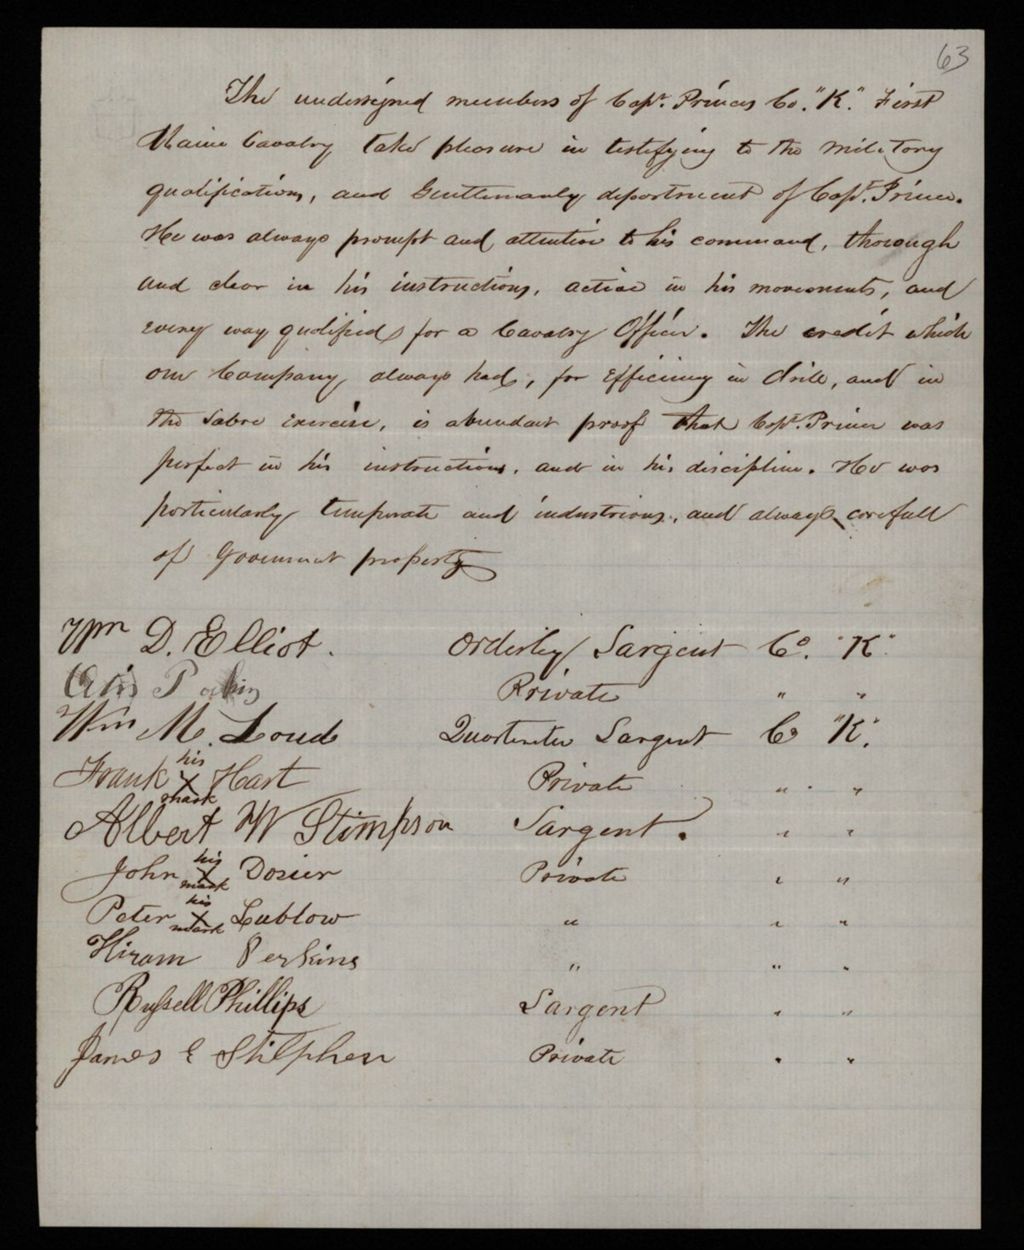 63
The undersigned members of Capt. Princes Co. "K." First
Maine Cavalry take pleasure in testifying to the military
qualifications, and Gentlemanly deportment of Capt. Prince.
He was always prompt and attentive to his command, thorough
and clear in his instructions, active in his movements, and
every way qualified for a Cavalry Officer. The credit which
our Company always had, for efficiency in drill, and in
the Sabre exercise, is abundant proof that Capt. Prince was
perfect in his instructions, and in his discipline. He was
particularly temperate and industrious, and always carefull
of Government property
Wm D. Elliot. Orderley Sargent Co. "K."
Private " "
Wm M. Loud Sargent Co "K."
Frank his X mark Hart Private " "
Albert W Stimpson Sargent. " "
John his X mark Dosier Private " "
Peter his X mark Lublow " " "
Hiram Perkins " " "
Russell Phillips Sargent " "
James E Stilphen Private " "